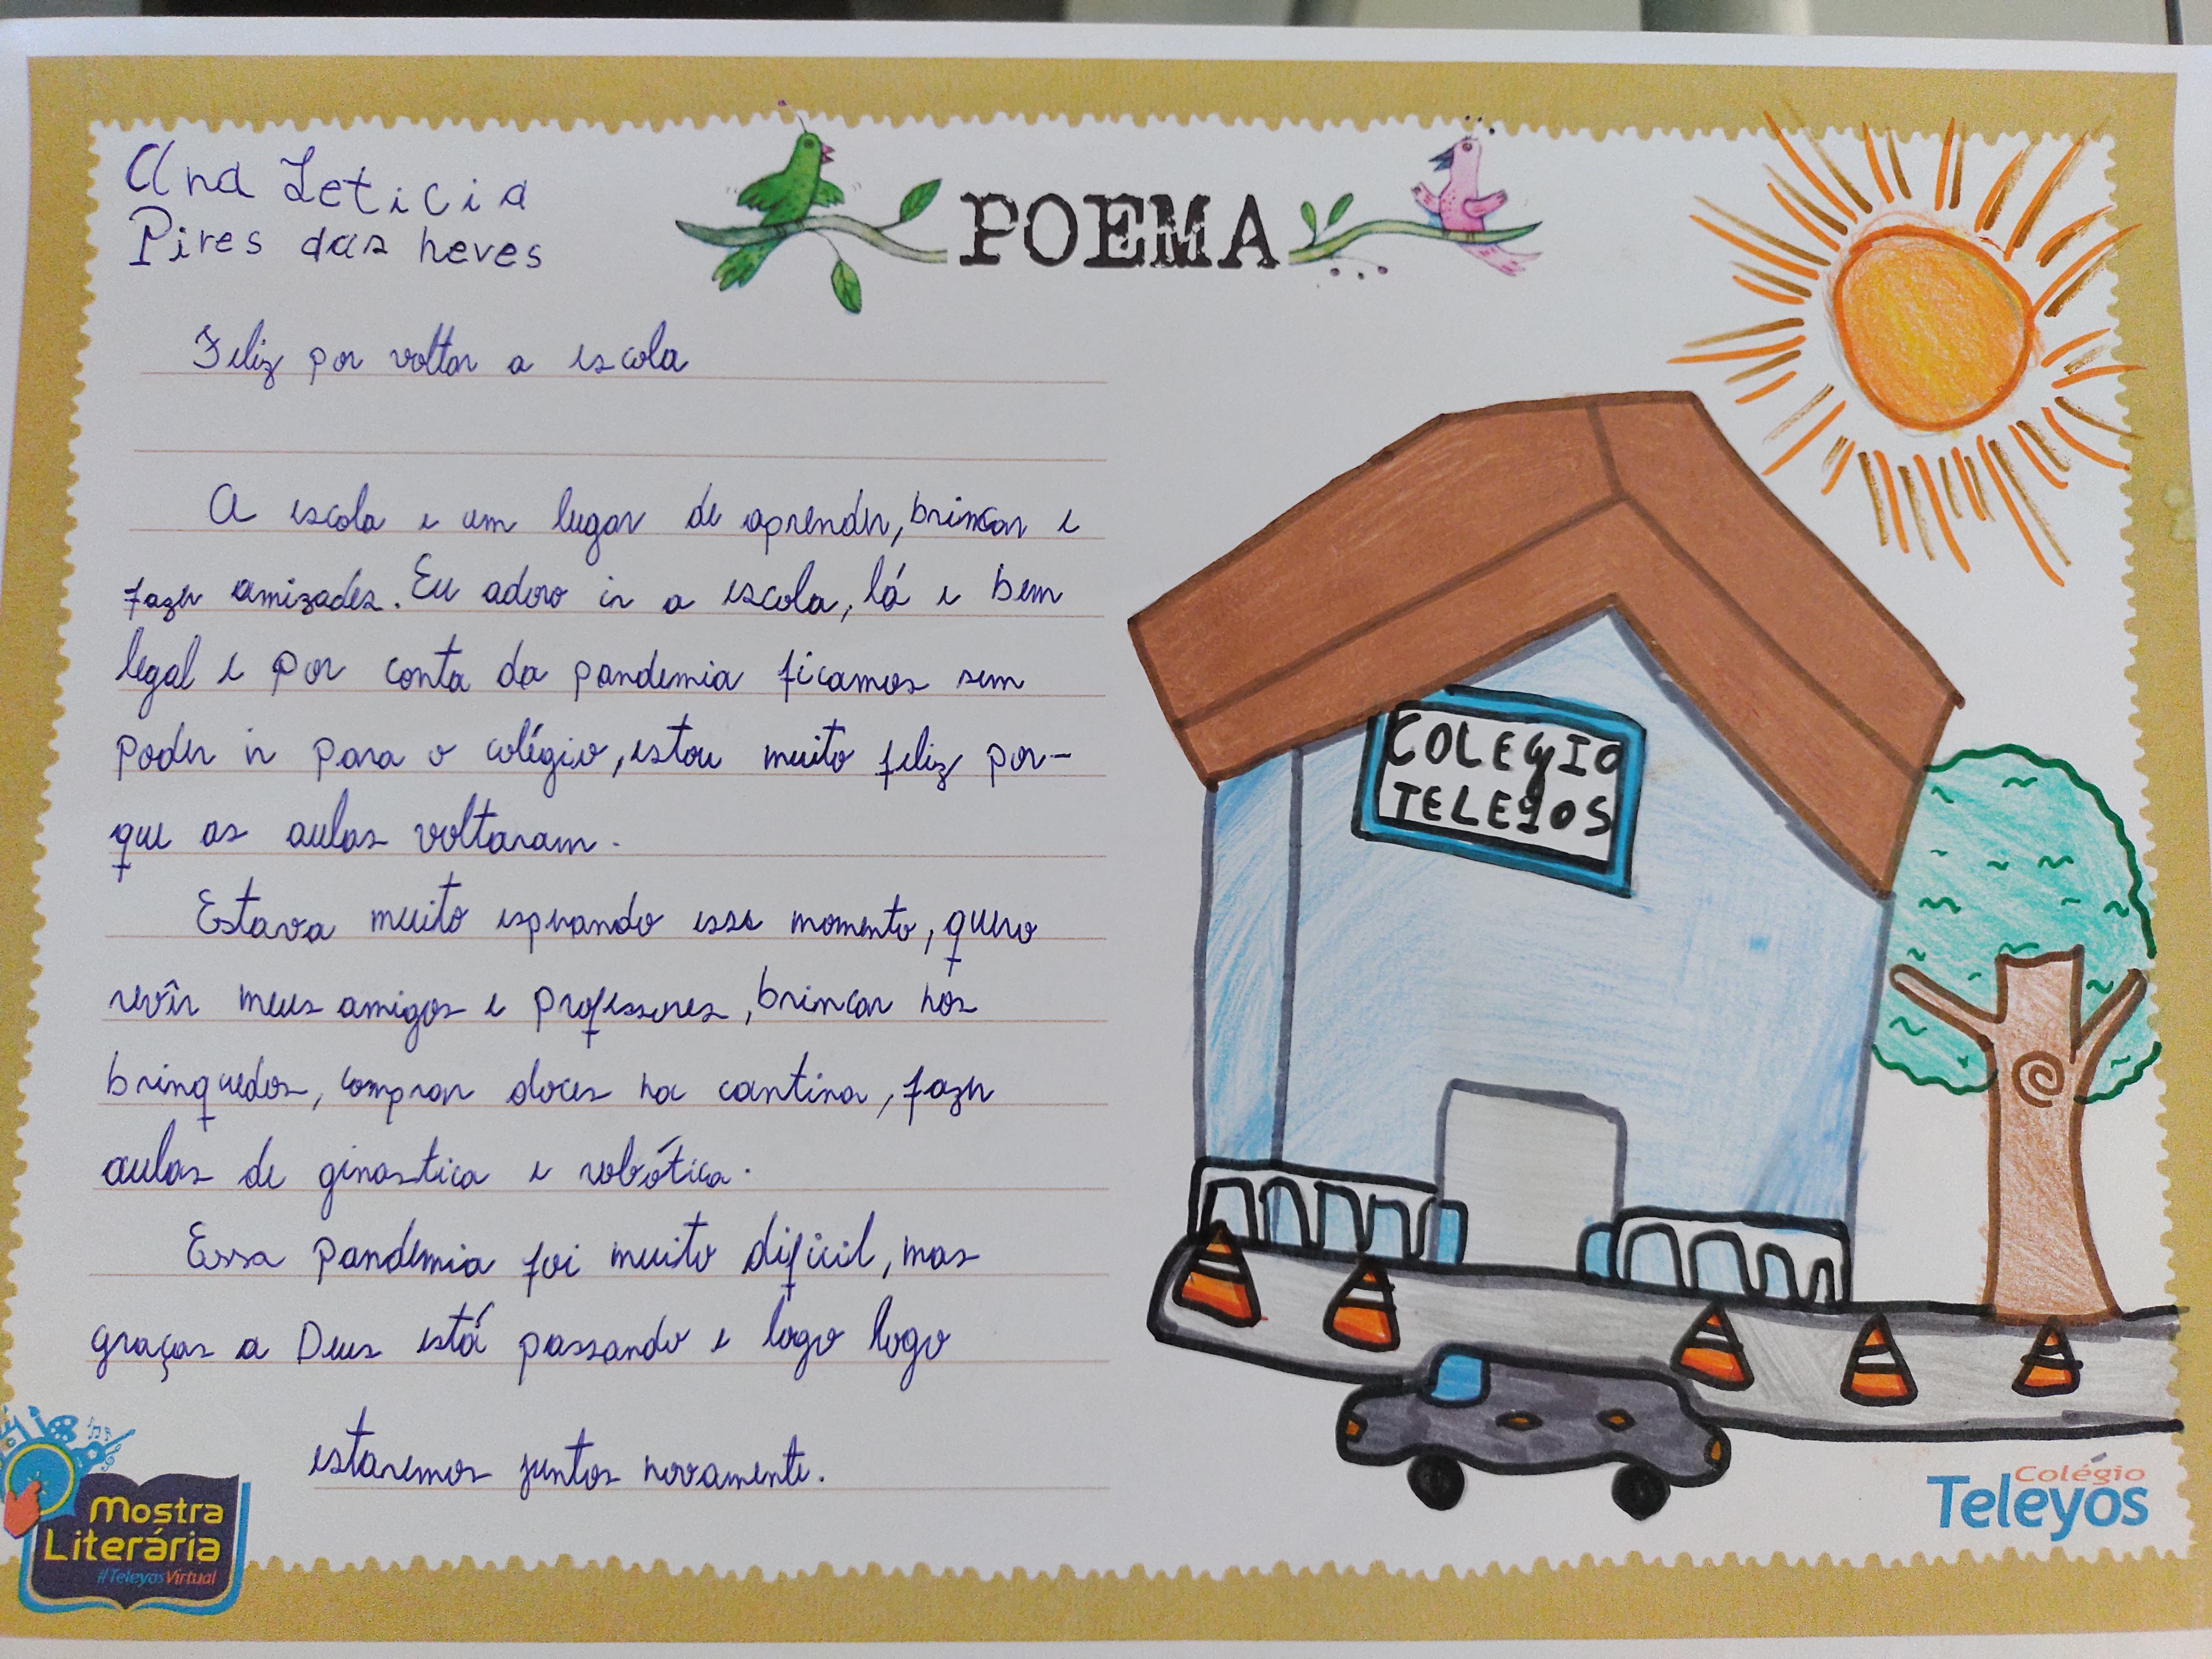 Ana Leticia
Pires das neves
POEMA
Feliz por voltar a escola
A escola e um lugar de aprender, brincar e
fazer amizades. Eu adoro ir a escola, lá e bem
legal e por conta da pandemia ficamos sem
poder ir para o colégio, estou muito feliz por-
que as aulas voltaram.
Estava muito esperando esse momento, quero
revîr meus amigos e professores, brincar nos
brinquedos, comprar doces na cantina, fazer
aulas de ginastica e robótica.
Essa pandemia foi muito dificil, mas
graças a Deus está passando e logo logo
estaremos juntos novamente.
COLEGIO
TELEYOS
Mostra
Literária
#TeleyosVirtual
Colégio
Teleyos